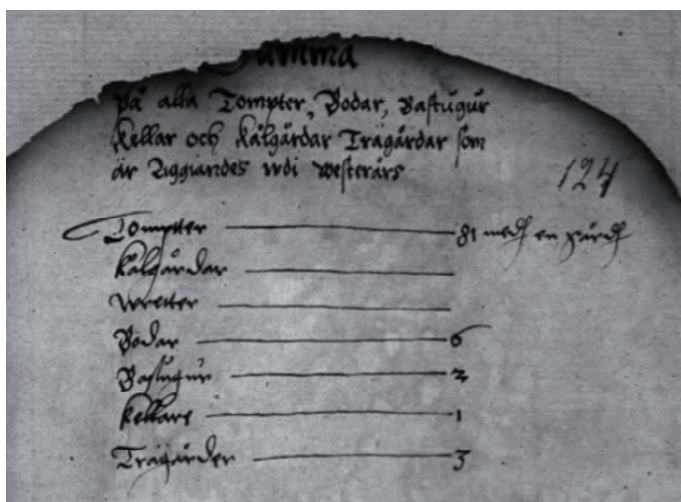 Summa
På alla Tompter, Bodar, Bastugur
Kellar och Kålgårdar Trägårdar som
är Liggiandes udi Westerårs
124
Tompter 81 medh en
Kålgårdar
Wretter
Bodar 6
Bastugur 2
Kellare 1
Trägårder 3